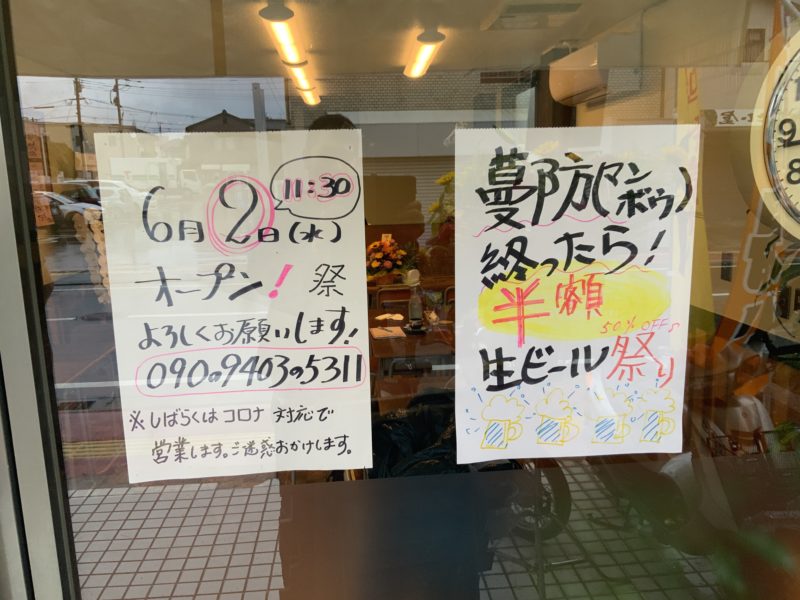 11:30
6月2日(水)
オープン!祭
よろしくお願いします!
090の9403の5311
※しばらくはコロナ対応で
営業します。ご迷惑おかけします。
蔓防(マンボウ)
終ったら!
半額
50%OFF
生ビール祭り
9
8